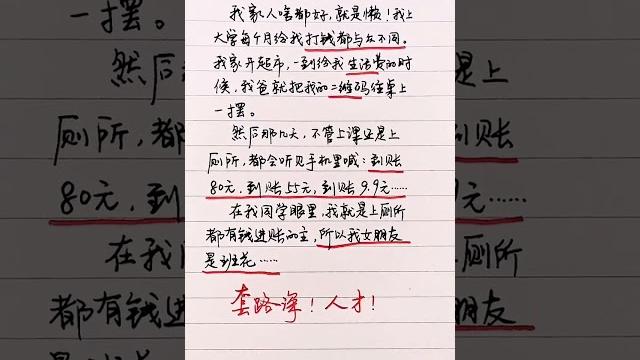 我家人啥都好，就是懒！我上
大学每个月给我打钱都与众不同。
我家开超市，一到给我生活费的时
候，我爸就把我的二维码往桌上
一摆。
然后那几天，不管上课还是上
厕所，都会听见手机里喊：到账
80元，到账55元，到账9.9元……
在我同学眼里，我就是上厕所
都有钱进账的主，所以我女朋友
是班花……
套路深！人才！